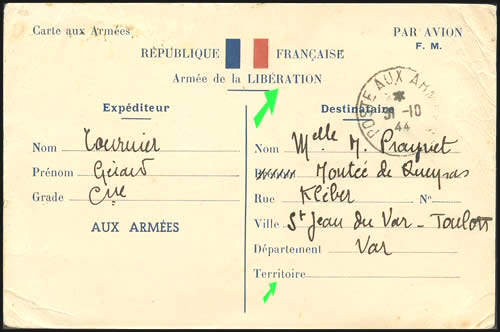 Carte aux Armées
PAR AVION
F. M.
RÉPUBLIQUE FRANÇAISE
Armée de la LIBÉRATION
POSTE AUX ARM
31-10
44
Expéditeur
Nom Tournier
Prénom Gérard
Grade
AUX ARMÉES
Destinataire
Nom Melle M.
Montée de
Rue Kléber No
Ville St Jean du Var - Toulon
Département Var
Territoire